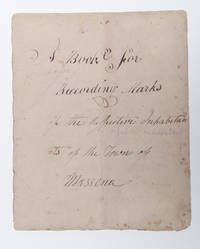 A Book for
Recording Marks
of the Respective Inhabitan
ts of the Town of
Massena